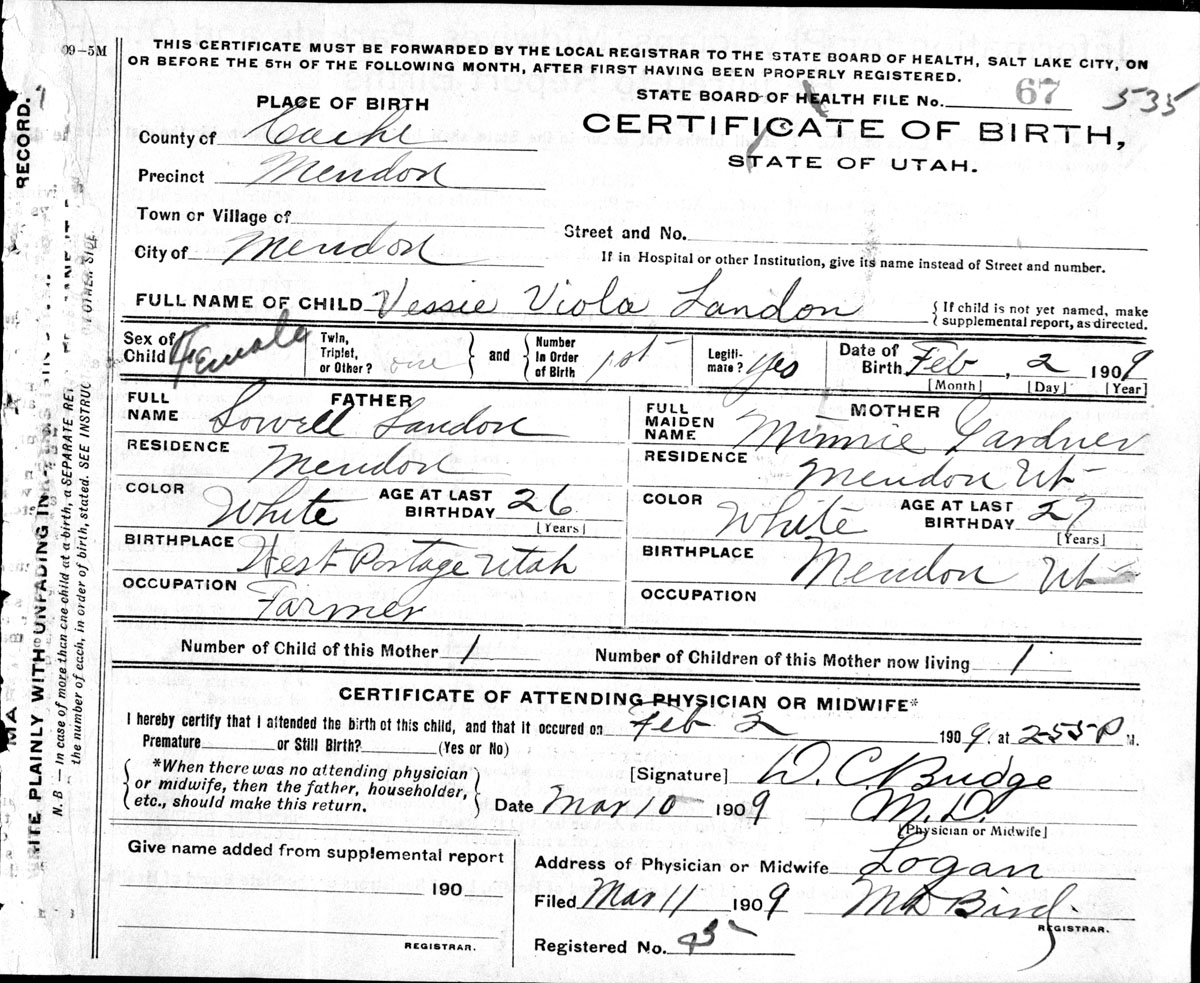 09-5M
THIS CERTIFICATE MUST BE FORWARDED BY THE LOCAL REGISTRAR TO THE STATE BOARD OF HEALTH, SALT LAKE CITY, ON
OR BEFORE THE 5TH OF THE FOLLOWING MONTH, AFTER FIRST HAVING BEEN PROPERLY REGISTERED.
STATE BOARD OF HEALTH FILE No. 67 535
PLACE OF BIRTH
CERTIFICATE OF BIRTH,
STATE OF UTAH.
County of Cache
Precinct Mendon
Town or Village of
Street and No.
City of Mendon
If in Hospital or other Institution, give its name instead of Street and number.
FULL NAME OF CHILD Vessie Viola Landon {If child is not yet named, make
supplemental report, as directed.
Sex of Child Female Twin, Triplet, or Other? one and Number In Order of Birth 1st Legiti-mate? yes Date of Birth Feb, 2 1909
[Month] [Day] [Year]
FATHER
FULL NAME Lowell Landon
RESIDENCE Mendon
COLOR White AGE AT LAST BIRTHDAY 26
[Years]
BIRTHPLACE West Portage Utah
OCCUPATION Farmer
MOTHER
FULL MAIDEN NAME Minnie Gardner
RESIDENCE Mendon Ut
COLOR White AGE AT LAST BIRTHDAY 27
[Years]
BIRTHPLACE Mendon Ut
OCCUPATION
Number of Child of this Mother 1 Number of Children of this Mother now living 1
CERTIFICATE OF ATTENDING PHYSICIAN OR MIDWIFE*
I hereby certify that I attended the birth of this child, and that it occured on Feb 2 1909. at 2-55 P M.
Premature or Still Birth? (Yes or No)
*When there was no attending physician
or midwife, then the father, householder,
etc., should make this return.
[Signature] D. C. Budge
Date Mar 10 1909 M.D.
[Physician or Midwife]
Give name added from supplemental report
190
REGISTRAR.
Address of Physician or Midwife Logan
Filed Mar 11 1909 M D Bird
REGISTRAR.
Registered No.
RECORD.
WRITE PLAINLY WITH UNFADING IN
N. B — In case of more than one child at a birth, a SEPARATE RE
the number of each, in order of birth, stated. SEE INSTRUC OTHER SIDE